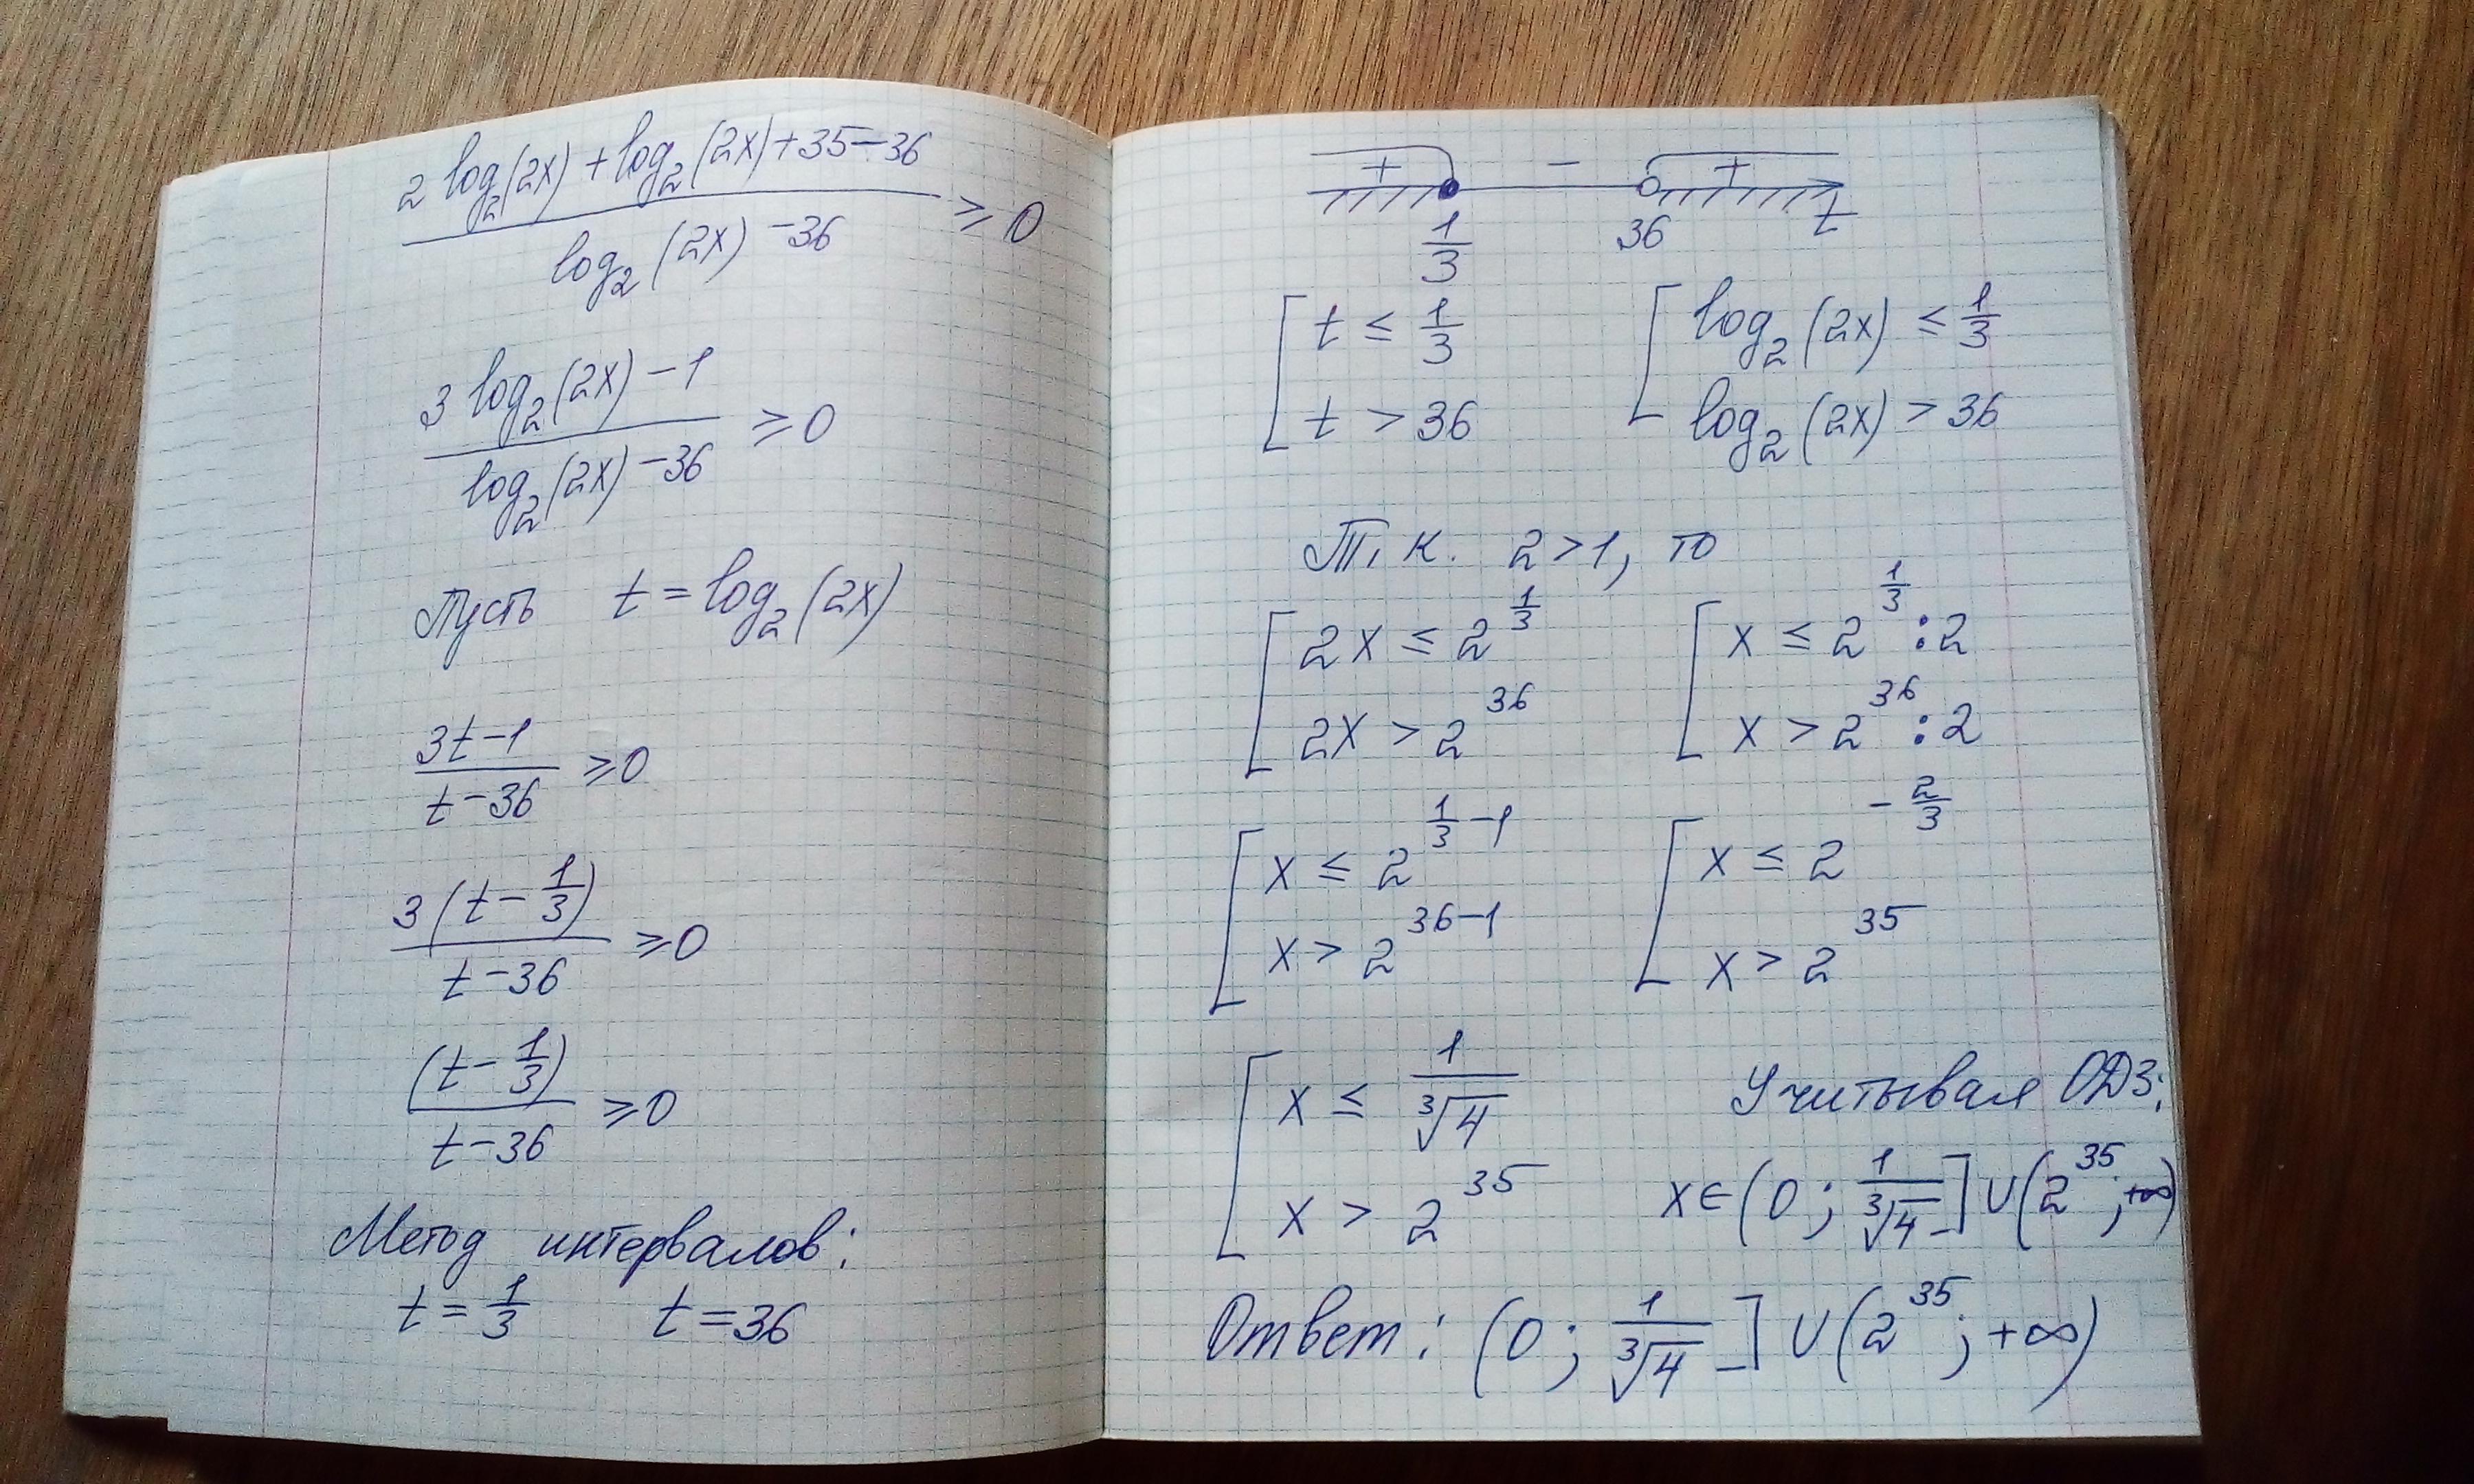 2 log₂(2x) + log₂(2x) + 35 − 36
log₂(2x) − 36
≥ 0
3 log₂(2x) − 1
log₂(2x) − 36
≥ 0
Пусть t = log₂(2x)
3t − 1
t − 36
≥ 0
3(t − 1/3)
t − 36
≥ 0
(t − 1/3)
t − 36
≥ 0
Метод интервалов:
t = 1/3 t = 36
+ − +
1/3 36 t
[ t ≤ 1/3 [ log₂(2x) ≤ 1/3
t > 36 log₂(2x) > 36
Т. к. 2 > 1, то
[ 2x ≤ 2^(1/3) [ x ≤ 2^(1/3) : 2
2x > 2^36 x > 2^36 : 2
[ x ≤ 2^(1/3 − 1) [ x ≤ 2^(−2/3)
x > 2^(36−1) x > 2^35
[ x ≤ 1/∛4 Учитывая ОДЗ:
x > 2^35 x ∈ (0; 1/∛4] ∪ (2^35; +∞)
Ответ: (0; 1/∛4] ∪ (2^35; +∞)